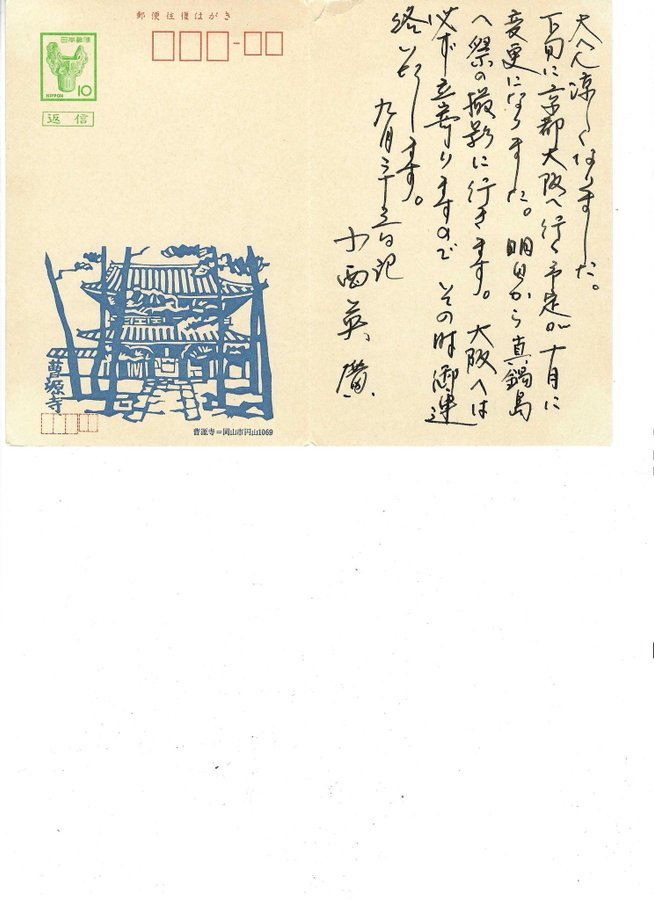 郵便往復はがき
日本郵便
NIPPON
10
返信
大へん涼しくなりました。
下旬に京都大阪へ行く予定が十月に
変更になりました。明日から真鍋島
へ祭の撮影に行きます。大阪へは
必ず立寄りますので その時御連
絡いたします。
九月二十五日記
小西英廣
曹源寺
曹源寺=岡山市円山1069